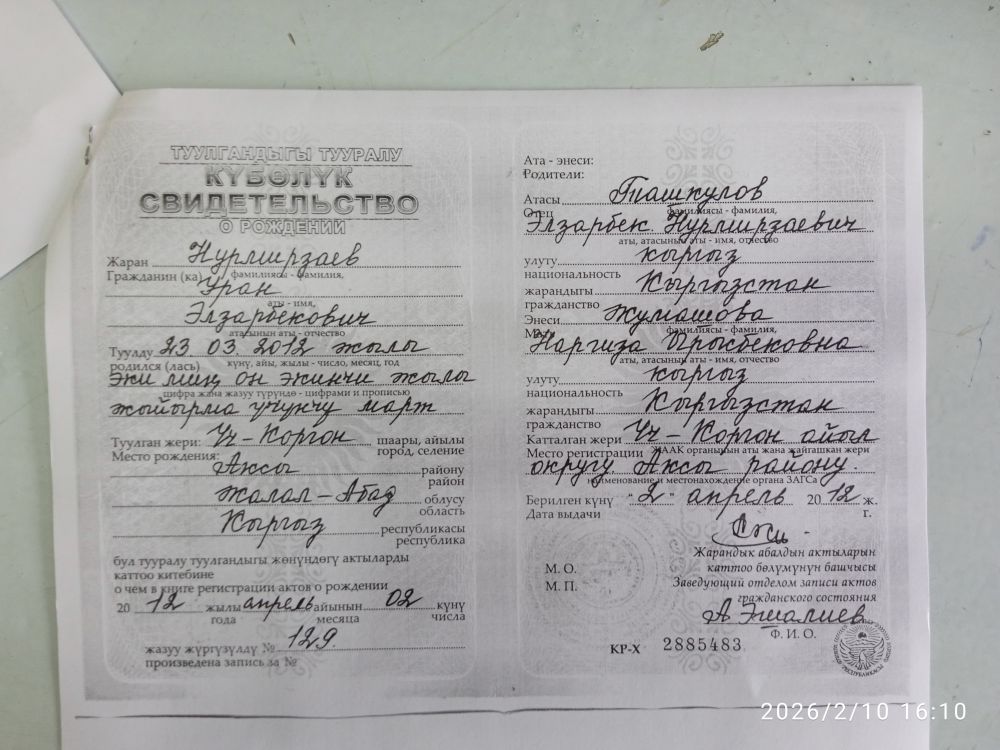 ТУУЛГАНДЫГЫ ТУУРАЛУУ
КҮБӨЛҮК
СВИДЕТЕЛЬСТВО
О РОЖДЕНИИ
Жаран Нурмирзаев
Гражданин (ка) фамилиясы - фамилия,
Уран
аты - имя,
Элзарбекович
атасынын аты - отчество
Туулду 23 03. 2012 жылы
родился (лась) күнү, айы, жылы - число, месяц, год
эки миң он экинчи жылы
цифра жана жазуу түрүндө - цифрами и прописью
жыйырма үчүнчү март
Туулган жери: Үч-Коргон шаары, айылы
Место рождения: город, селение
Аксы району
район
Жалал-Абад облусу
область
Кыргыз республикасы
республика
бул тууралу туулгандыгы жөнүндөгү актыларды
каттоо китебине
о чем в книге регистрации актов о рождении
20 12 жылы апрель айынын 02 күнү
года месяца числа
жазуу жүргүзүлдү № 129.
произведена запись за №
Ата - энеси:
Родители:
Атасы Ташкулов
Отец фамилиясы - фамилия,
Элзарбек Нурмирзаевич
аты, атасынын аты - имя, отчество
улуту кыргыз
национальность
жарандыгы Кыргызстан
гражданство
Энеси Жумашова
фамилиясы - фамилия,
Наргиза Ырысбековна
аты, атасынын аты - имя, отчество
улуту кыргыз
национальность
жарандыгы Кыргызстан
гражданство
Катталган жери Үч-Коргон айыл
Место регистрации ЖААК органынын аты жана жайгашкан жери
округу Аксы району.
наименование и местонахождение органа ЗАГСа
Берилген күнү "2" апрель 20 12 ж.
Дата выдачи г.
М. О.
М. П.
Жарандык абалдын актыларын
каттоо бөлүмүнүн башчысы
Заведующий отделом записи актов
гражданского состояния
А Эшалиев
Ф. И. О.
КР-Х 2885483
2026/2/10 16:10